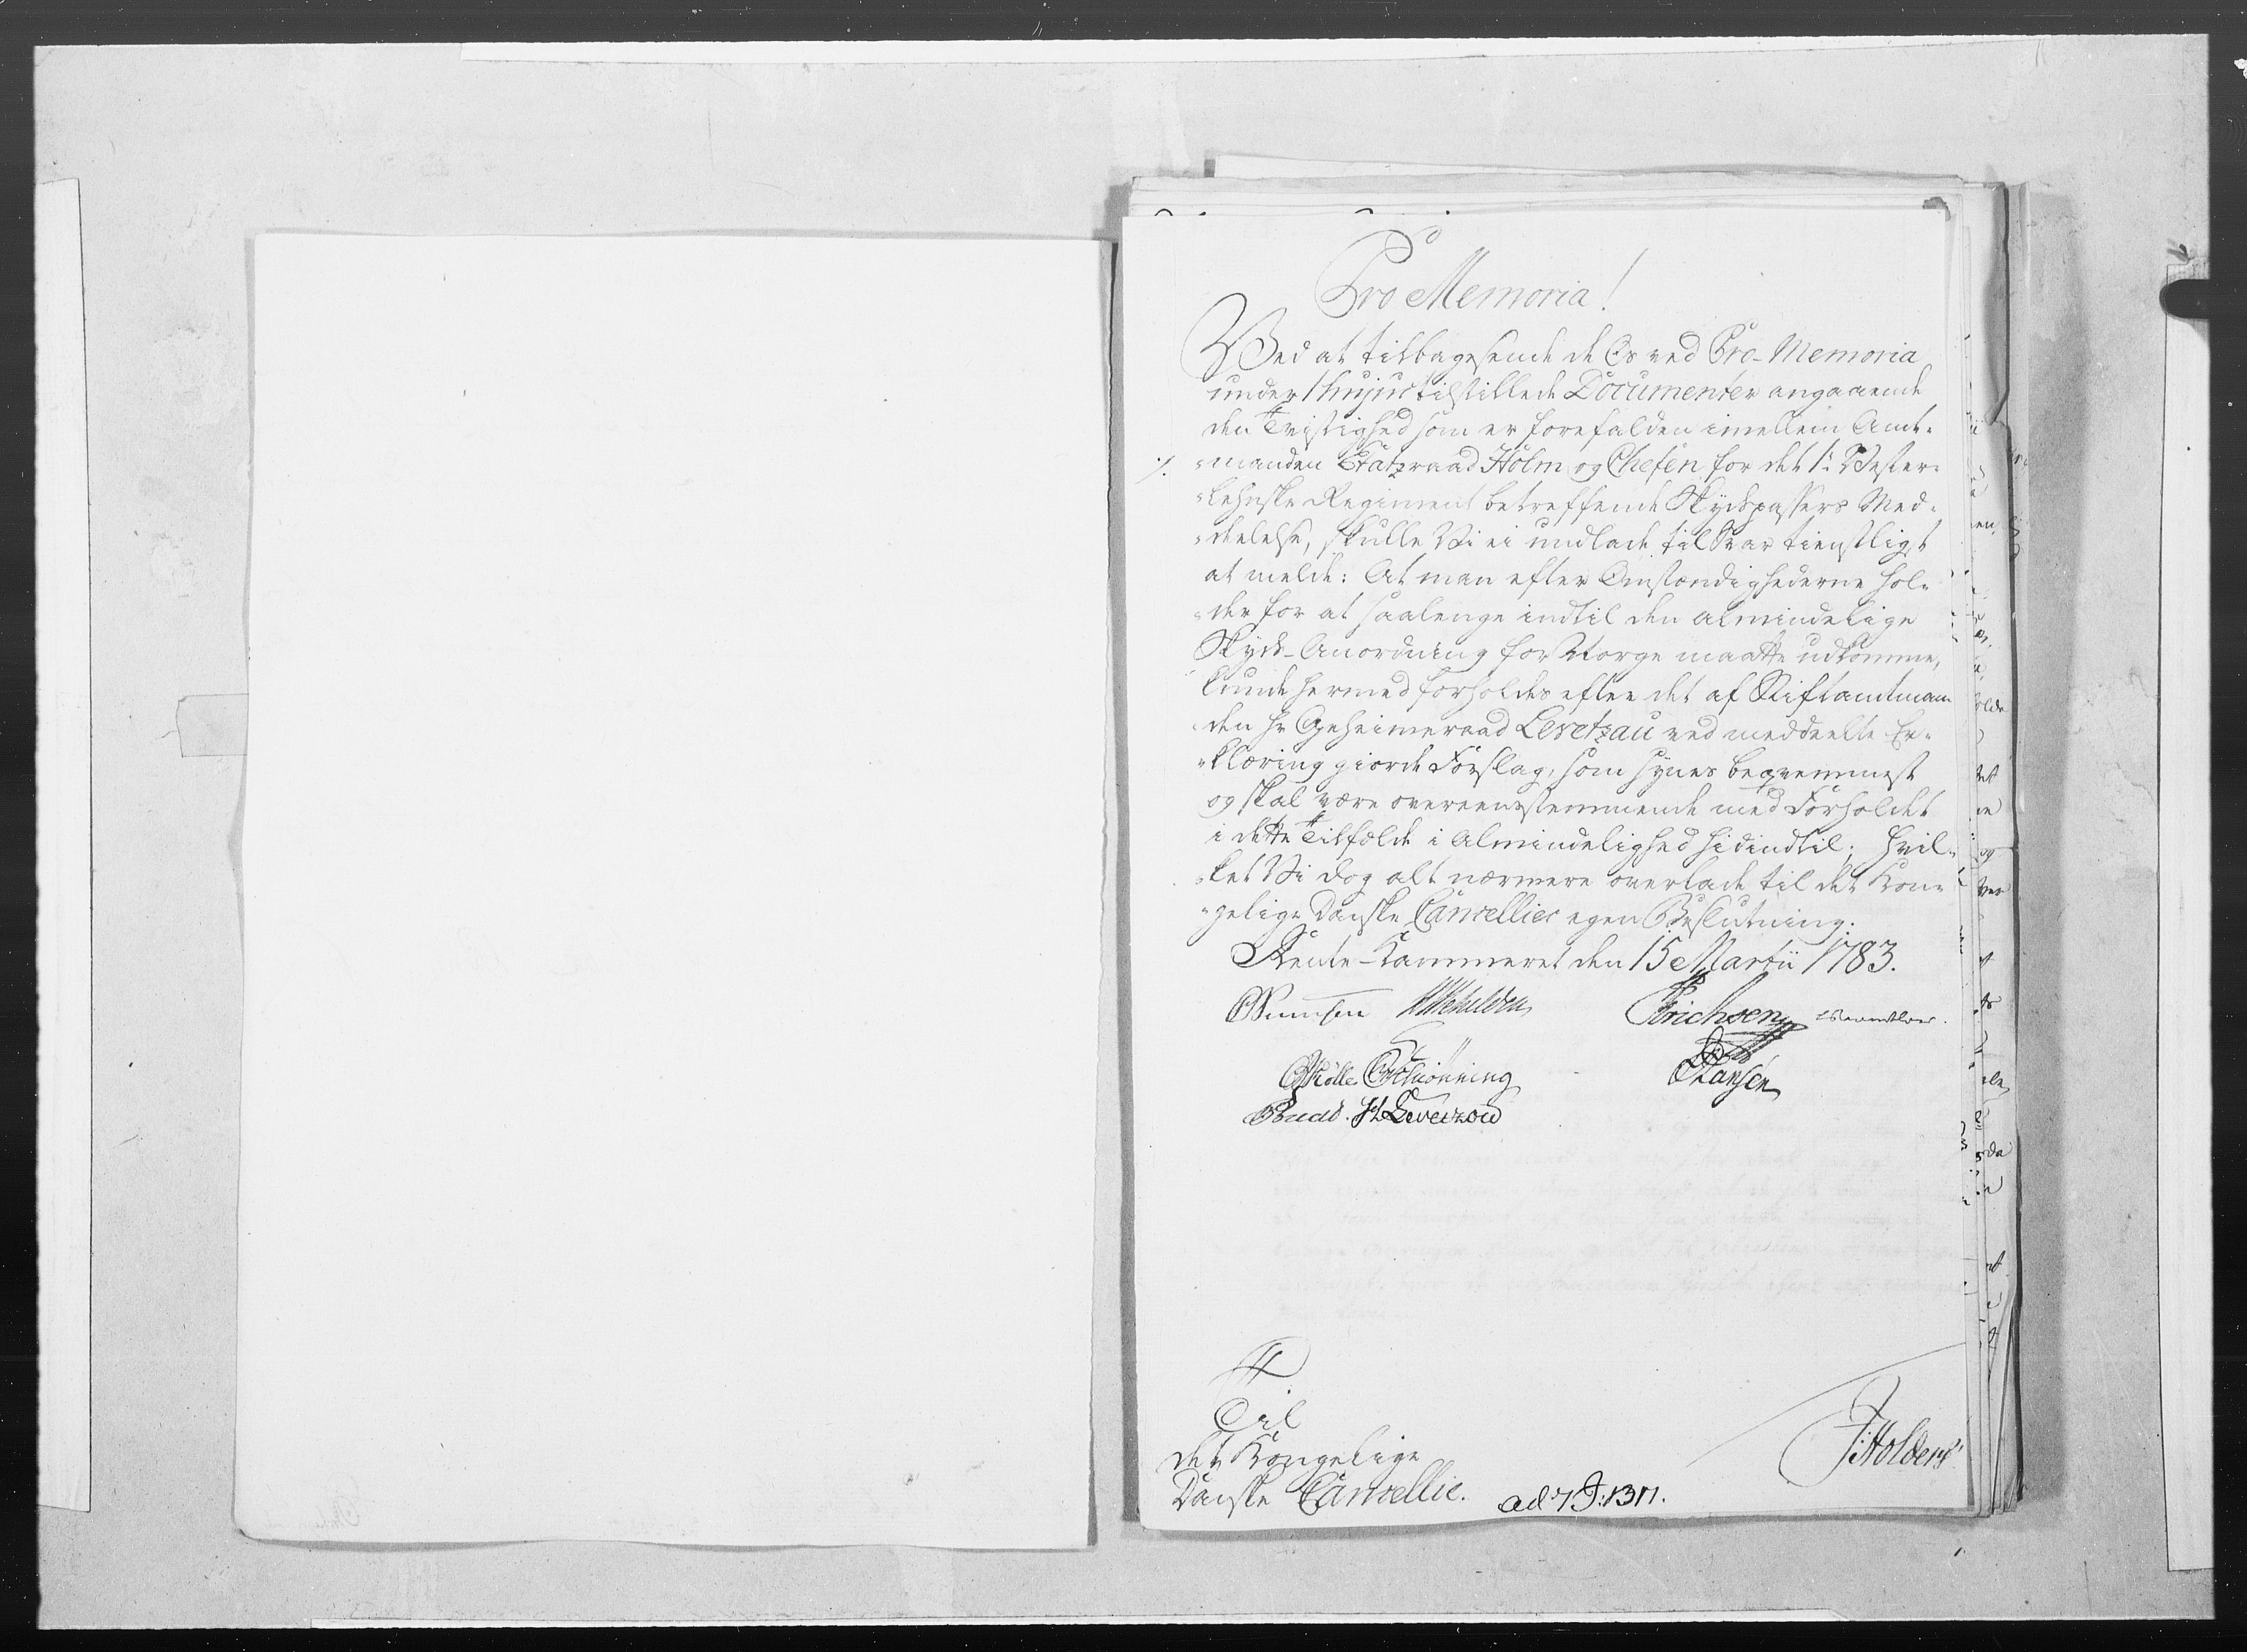 Pro Memoria!
Ved at tilbagesende de Os ved Pro-Memoria
under 1 hujus tilstillede Documenter angaaende
den Tvistighed som er forefalden imellem Amt-
manden Etatzraad Holm og Chefen for det 1te Vester-
lehnske Regiment betreffende Skydspassers Med-
deelelse, skulle Vi ei undlade til Svar tienstligst
at melde: At man efter Omstændighederne hol-
der for at saalenge indtil den almindelige
Skyds-Anordning for Norge maatte udkomme,
kunde hermed forholdes efter det af Stiftamtman
den Hr Geheimeraad Levetzau ved meddeelte Er-
klæring giorde Forslag, som synes beqvemmest
og skal være overeensstemmende med Forholdet
i dette Tilfælde i Almindelighed hidindtil; hvil-
ket Vi dog alt nærmere overlade til det Kon-
gelige Danske Cancellies egen Beslutning.
Rente-Kammeret den 15 Martii 1783.
Erichsen
Schiønning Hansen
Levetzow
Til
det Kongelige
Danske Cancellie.